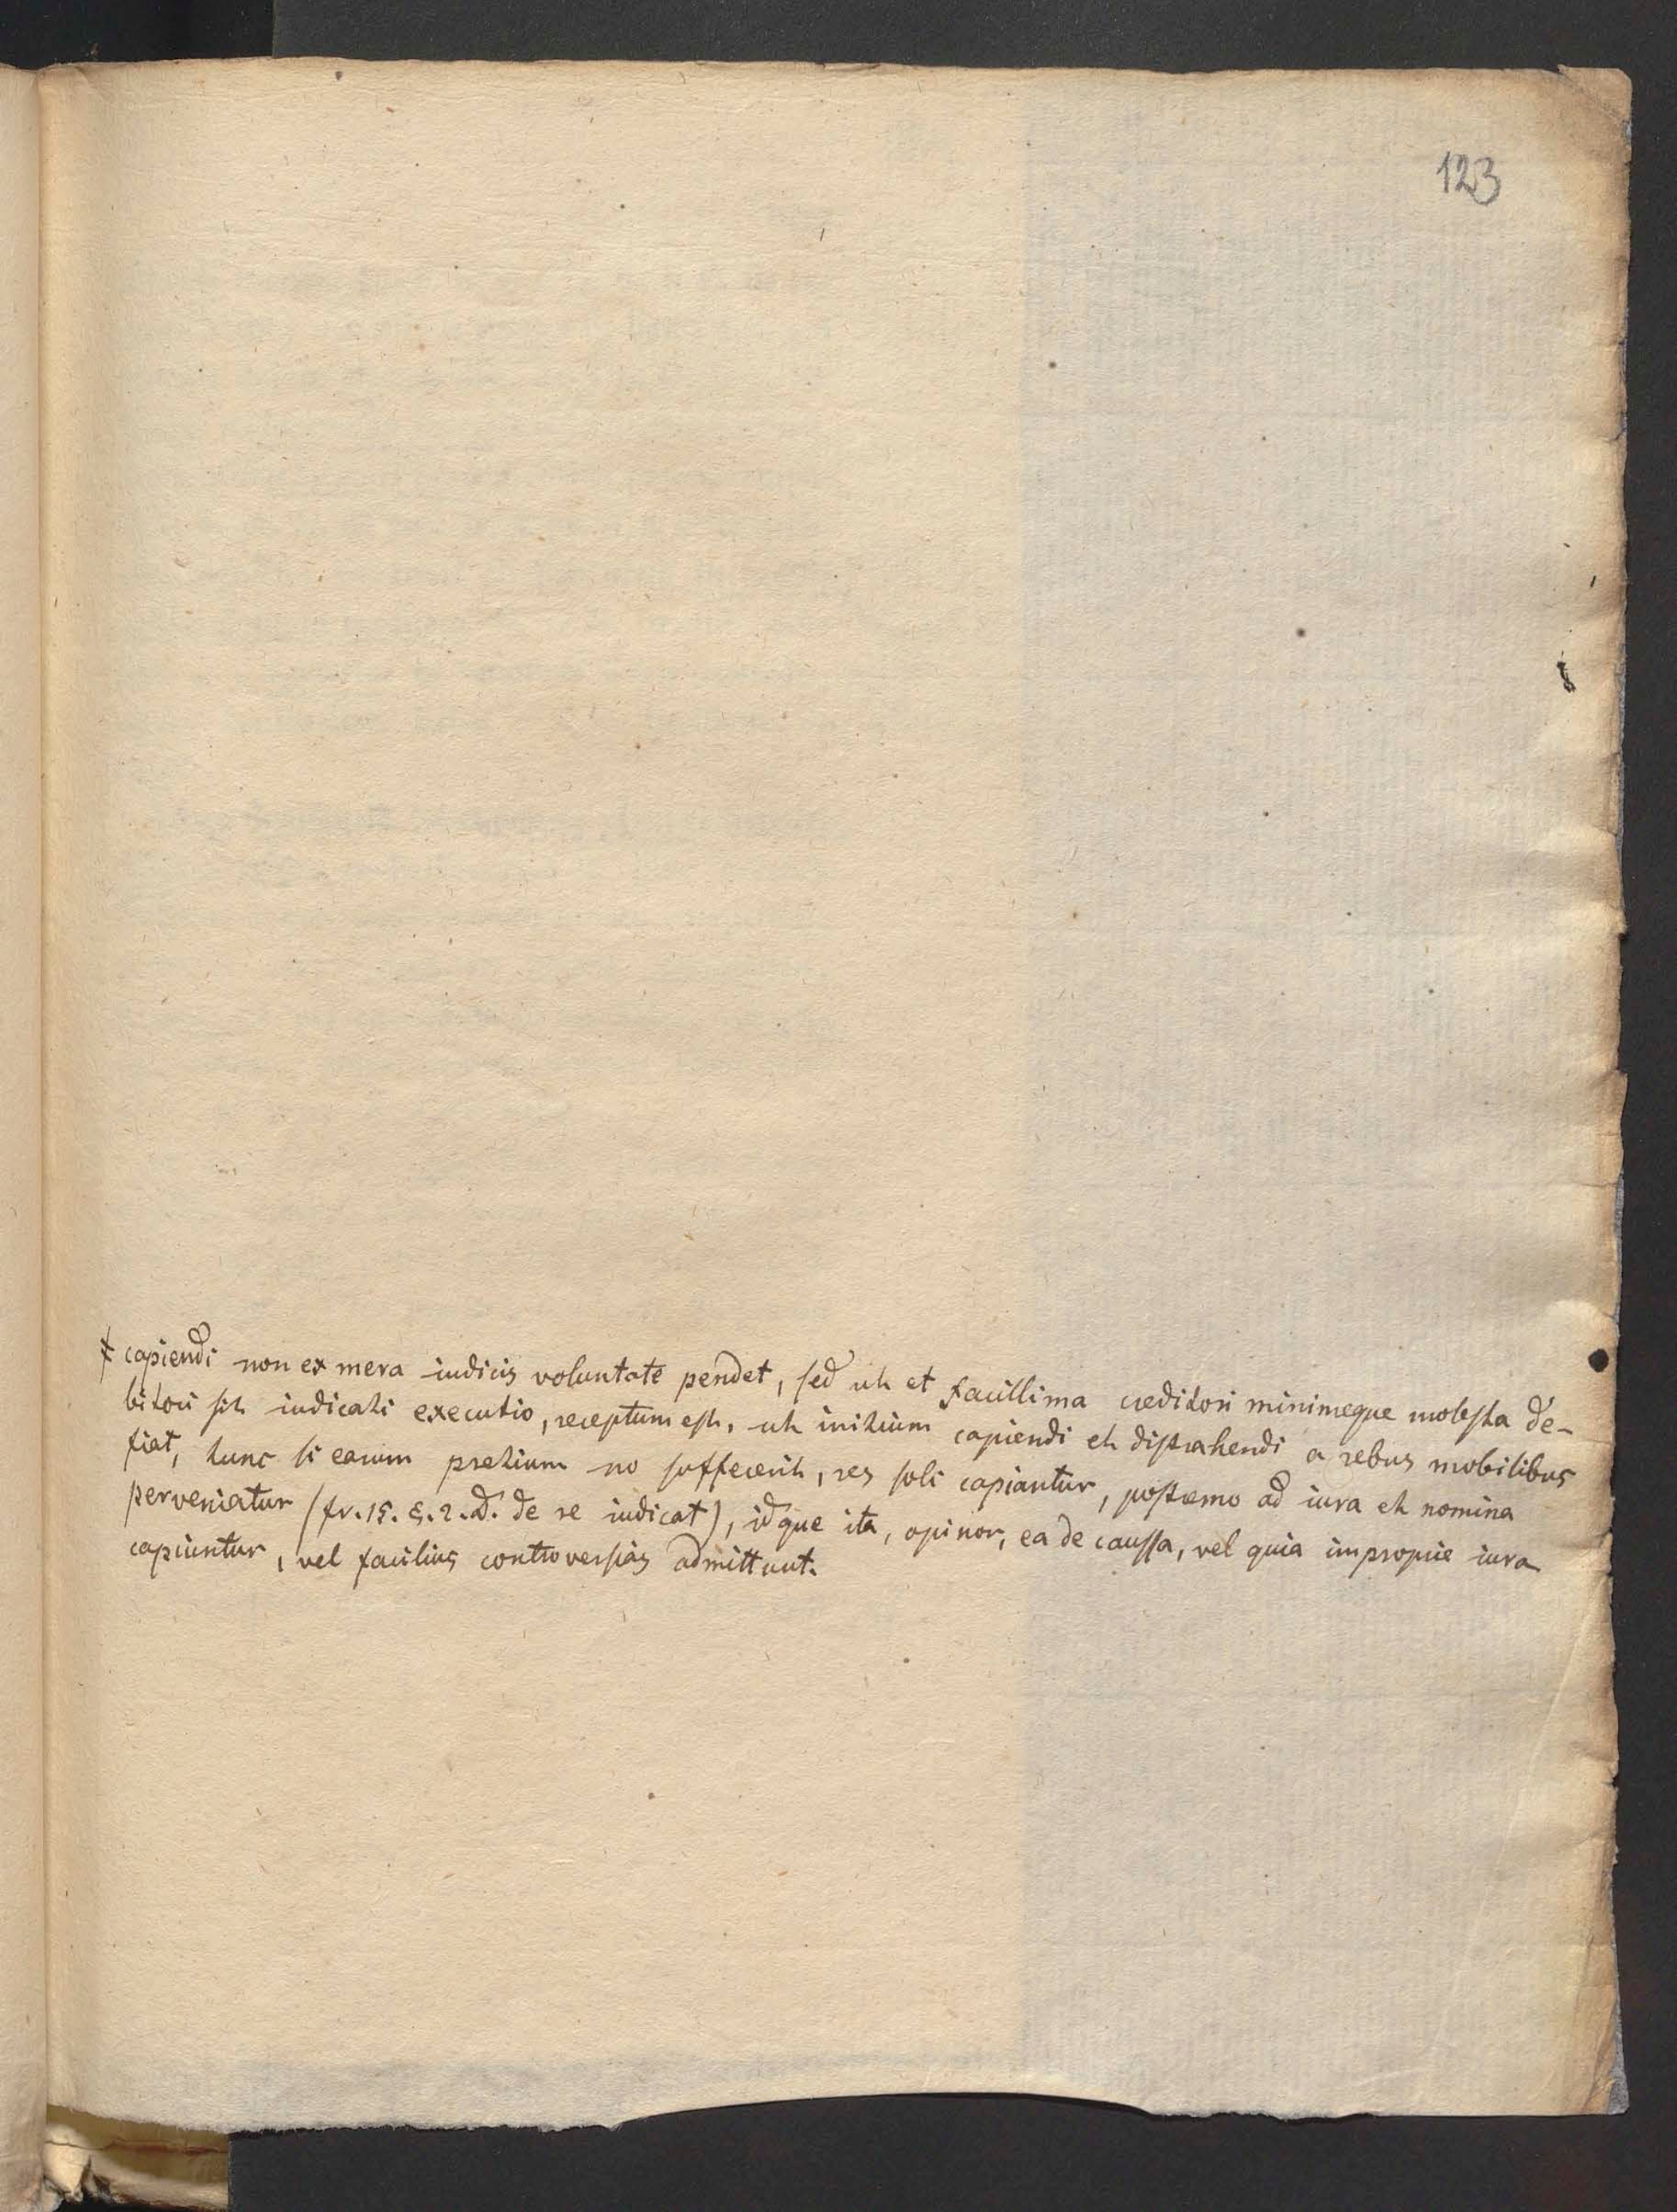 123
‡ capiendi non ex mera iudicis voluntate pendet, sed ut et facillima creditori minimeque molesta de-
bitori sit iudicati executio, receptum est, ut initium capiendi et distrahendi a rebus mobilibus
fiat, tunc si earum pretium no suffecerit, res soli capiantur, postremo ad iura et nomina
perveniatur (fr. 15. §. 2. D. de re iudicat), idque ita, opinor, ea de caussa, vel quia improprie iura
capiuntur, vel facilius controversias admittunt.